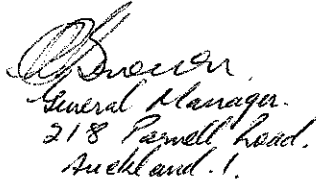 General Manager.
218 Parnell Road.
Auckland. 1.